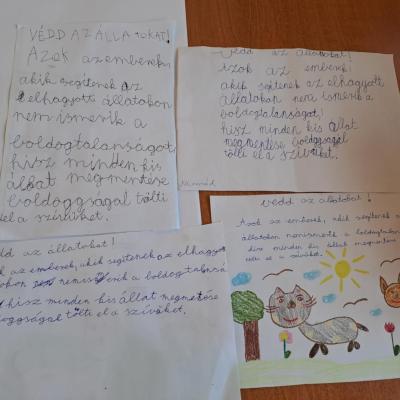 VÉDD AZ ÁLLATOKAT!
Azok az emberek,
akik segítenek az
elhagyott állatokon
nem ismerik a
boldogtalanságot
hisz minden kis
állat megmentése
boldoggsággal tölti
el a szívüket.
Védd az állatokat!
Azok az emberek
akik segítenek az elhagyott
állatokon nem ismerik a
boldogtalanságot!
hisz minden kis állat
megmentése boldoggságal
tölti el a szívüket.
Nimród
dd az állatokat!
k az emberek, akik segítenek az elhagyot
okon nemismerik a boldogtalansá
hisz minden kis állat megmetése
doggságal tölti el a szívüket.
védd az állatobat!
Azok az emberek, akik segítenek a
állatokon nemismerik a boldogtalan
hisz minden kis állat megmentése
tölti el a szívüket.